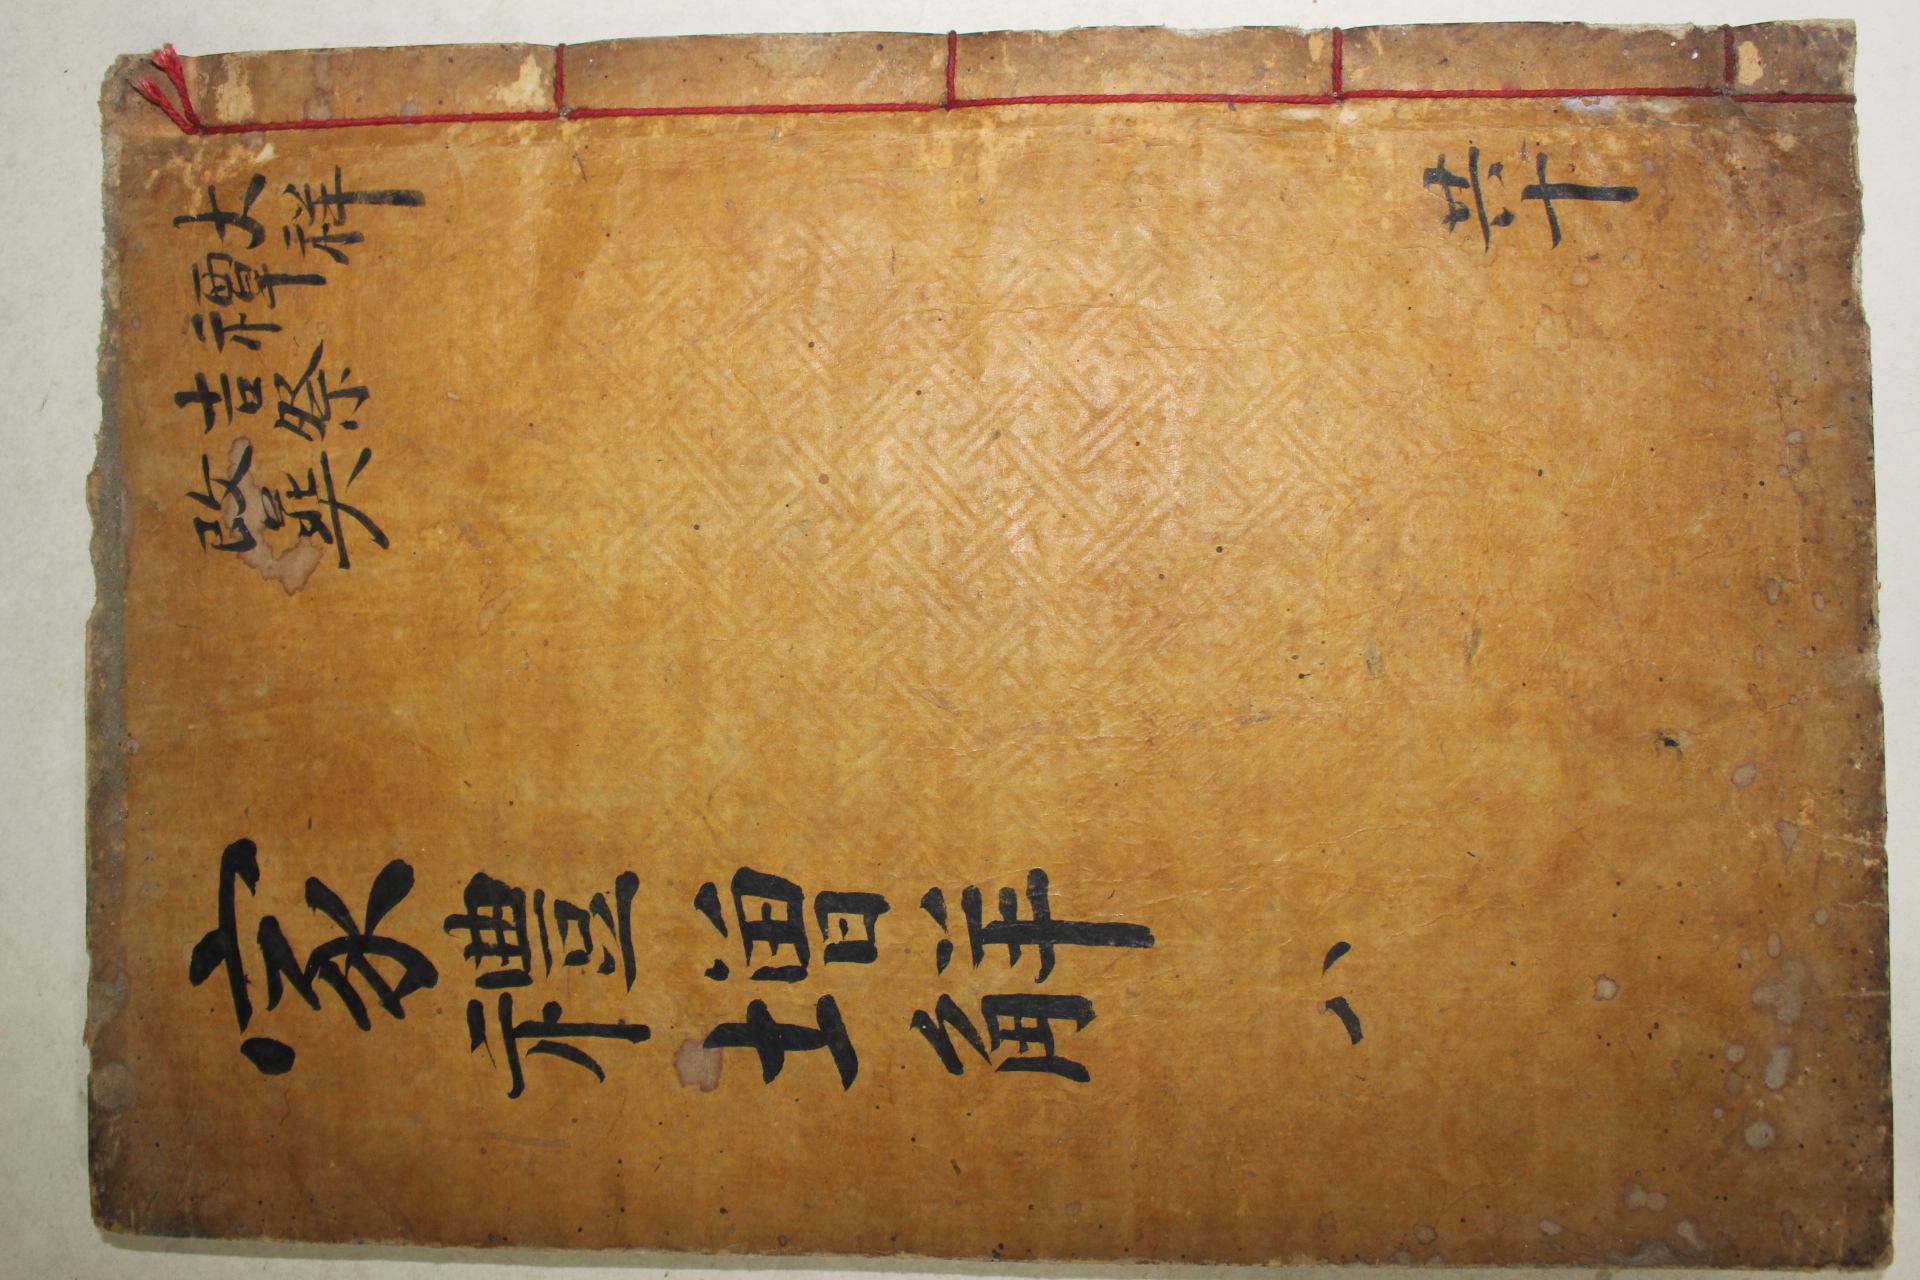 大祥
禫
吉祭
改葬
共十
家禮增觧 八